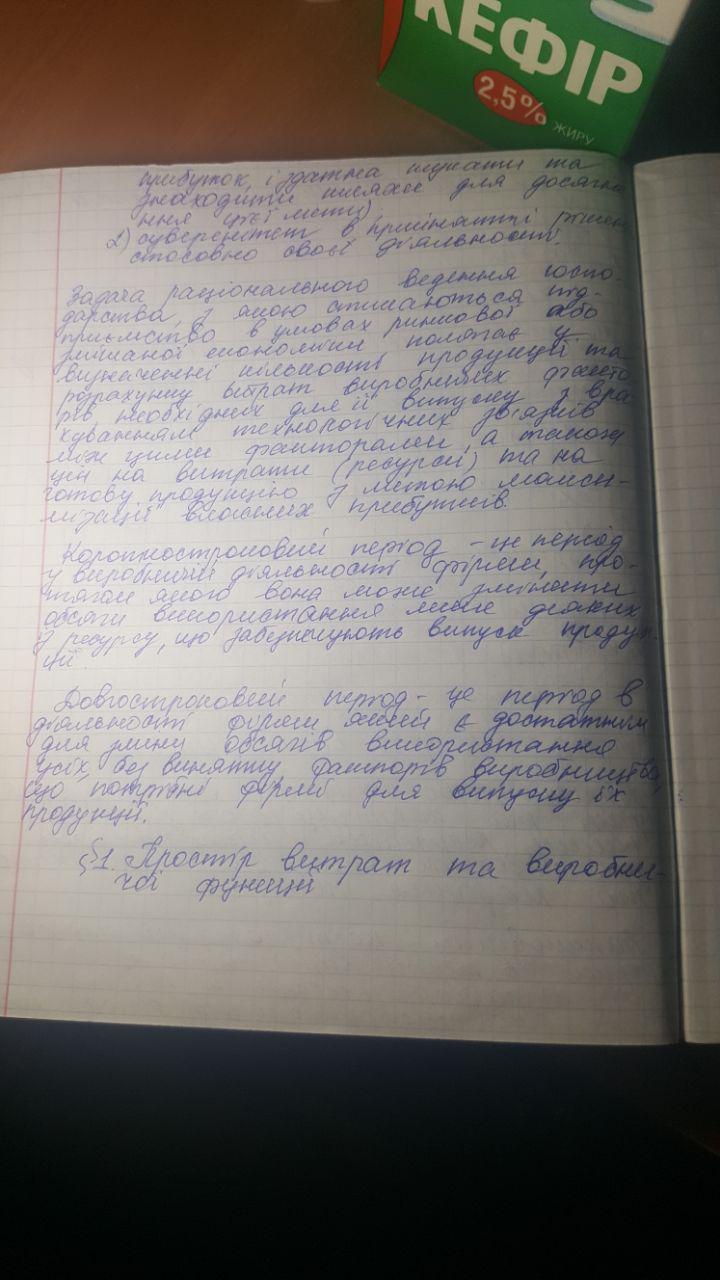 КЕФІР
2,5%
ЖИРУ
прибуток, і здатна шукати та
знаходити шляхи для досягне
ння цієї мети)
2) суверенітет в прийнятті рішень
стосовно своєї діяльності.
Задача раціонального ведення госпо-
дарства, з якою стикаються під-
приємство в умовах ринкової або
змішаної економіки полягає у
визначенні кількості продукції та
розрахунку витрат виробничих факто
рів необхідних для її випуску з вра
хуванням технологічних зв'язків
між цими факторами, а також
цін на витрати (ресурси) та на
готову продукцію з метою макси-
мізації власних прибутків.
Короткостроковий період - це період
у виробничій діяльності фірми, про-
тягом якого вона може змінити
обсяги використання лише деяких
з ресурсу, що забезпечують випуск продук-
ції.
Довгостроковий період - це період в
діяльності фірми який є достатнім
для зміни обсягів використання
усіх без винятку факторів виробництва,
що потрібні фірмі для випуску їх
продукції.
§1. Простір витрат та виробни-
чої функції